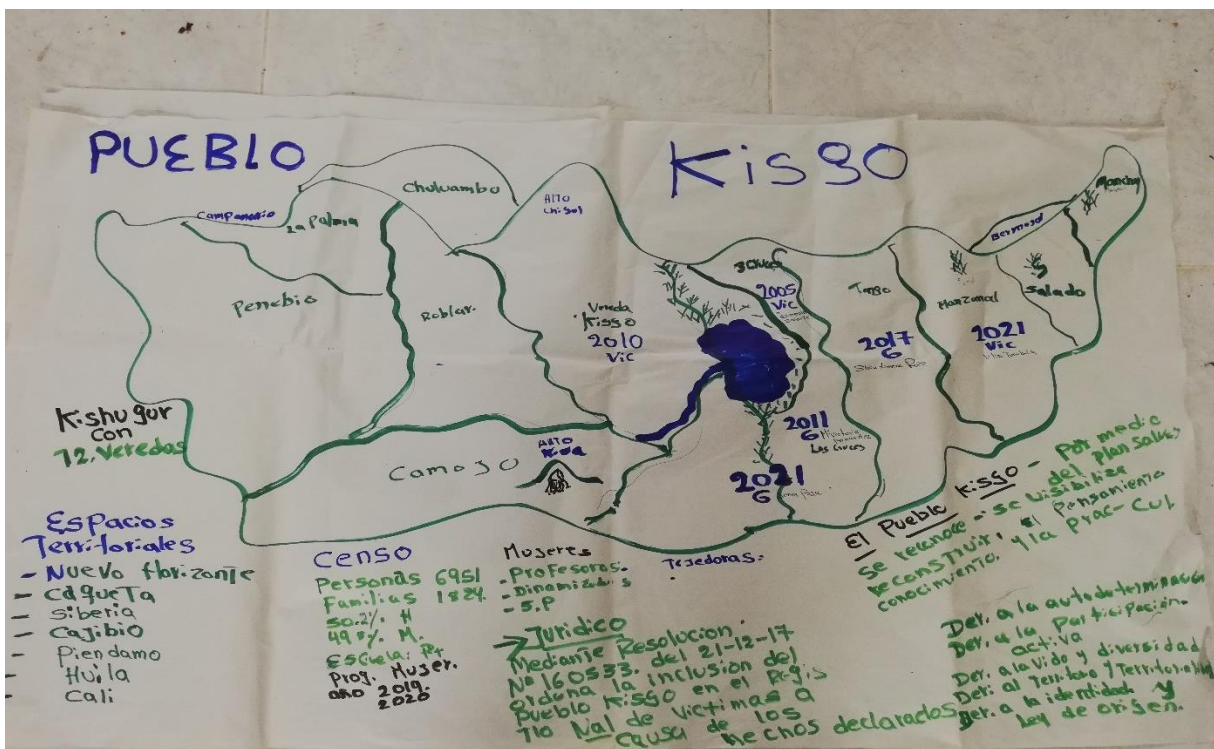 PUEBLO
Kisgo
Campanario
La Palma
Chuluambo
ALTO
Penebio
Roblar.
Vereda
Kisgo
2010
Vic
2005
Vic
Tengo
2017
G
Manzanal
2021
Vic
Bermejal
Salado
2011
G
Las Cruces
2021
G
Camojo
ALTO
Kishugur
con
12. Veredas
Espacios
Territoriales
- Nuevo Horizonte
- Caqueta
- Siberia
- Cajibio
- Piendamo
- Huila
- Cali
Censo
Personas 6951
Familias 1824
50.2% H
49.8% M.
Escuela:
Prog. Mujer.
año 2019.
2020
Mujeres
- Profesoras.
- S.P
Tejedoras.
→ Juridico
Mediante Resolucion.
Nº 160533. del 21-12-17
Ordena la inclusion del
Pueblo Kisgo en el Regis
tro Nal de victimas a
causa de los
hechos declarados
El Pueblo Kisgo - Por medio
del plan salva,
se reconoce - se visibiliza
reconstruir, el Pensamiento
conocimiento, y la prac- Cul
Der. a la autodeterminación
Der. a la Participación.
activa
Der. a la vida y diversidad
Der. al Territorio y Territorialidad
Der. a la identidad y
Ley de origen.